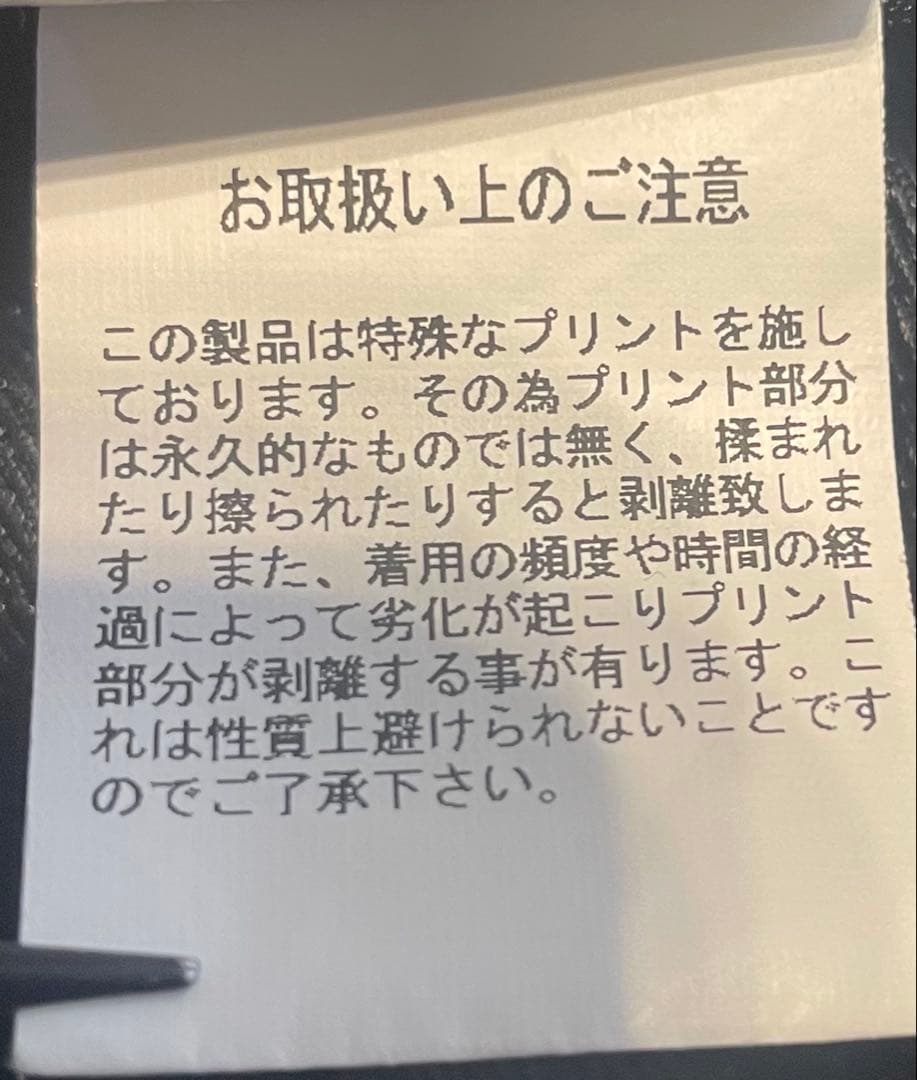 お取扱い上のご注意
この製品は特殊なプリントを施し
ております。その為プリント部分
は永久的なものでは無く、揉まれ
たり擦られたりすると剥離致しま
す。また、着用の頻度や時間の経
過によって劣化が起こりプリント
部分が剥離する事が有ります。こ
れは性質上避けられないことです
のでご了承下さい。